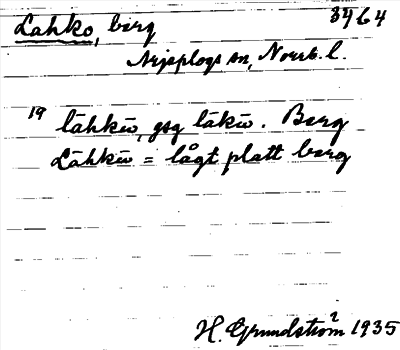 3464
Lahko, berg
Arjeplogs sn, Norrb. l.
19 lāhkō, gsg lākō. Berg
Lāhkō = lågt platt berg
H. Grundström 1935